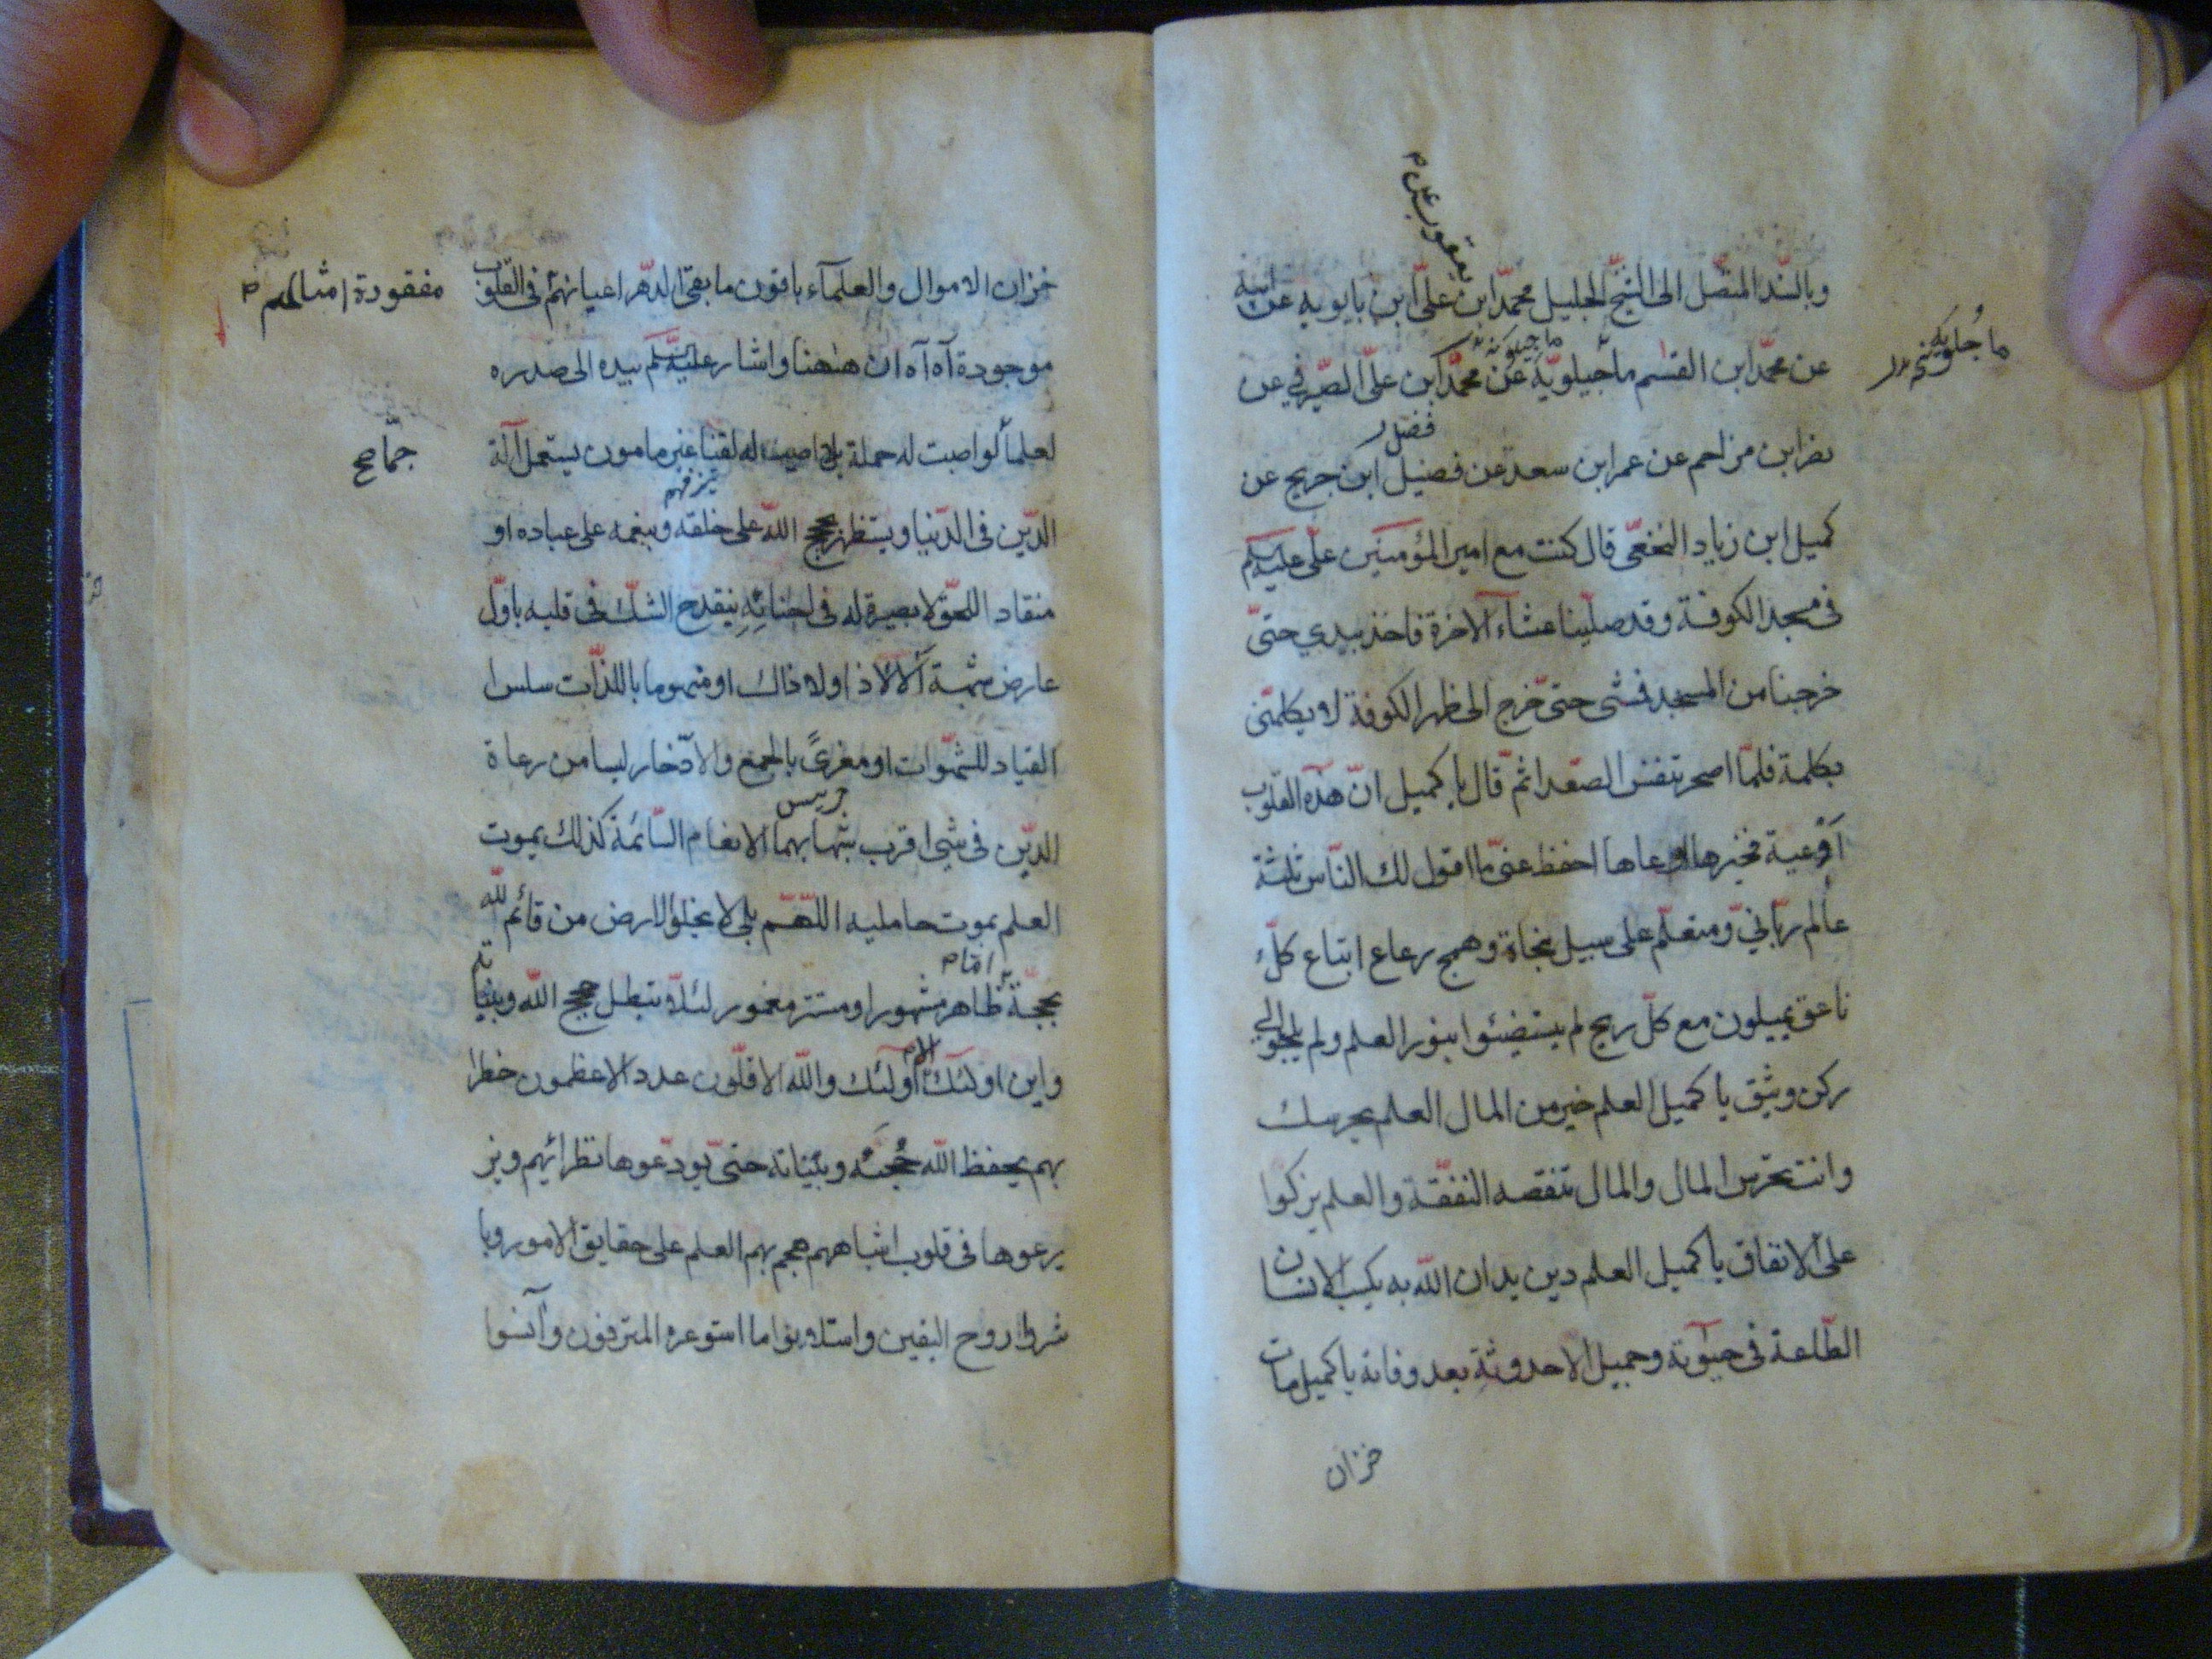 يعقوب عن م
وبالسّند المتصّل الى الشيخ الجليل محمّد ابن علىّ ابن بابويه عن ابيه
ما جُلويَه نخ بدر
ماجيلويه
عن محمّد ابن القسم ماجيلويّه عن محمّد ابن علىّ الصّيرفي عن
فضل ر
نصر ابن مزاحم عن عمر ابن سعد عن فضيل ابن جريح عن
كميل ابن زياد النخعىّ قال كنت مع امير المؤمنين علىّ عليه السلم
فى مسجد الكوفة وقد صلّينا عشآء الاخرة فاخذ بيدي حتىّ
خرجنا من المسجد فمشى حتىّ خرج الى ظهر الكوفة لا يكلمنى
بكلمة فلمّا اصحر تنفس الصعدا ثمّ قال يا كميل انّ هذه القلوب
اَوْعية فخيرها اوعاها احفظ عنىّ ما اقول لك النّاس ثلثة
عالم ربّانيّ ومتعلّم على سبيل نجاة وهمج رعاع اتباع كلّ
ناعق يميلون مع كلّ ريح لم يستضيئوا بنور العلم ولم يلجؤا الى
ركن وثيق يا كميل العلم خير من المال العلم يحرسك
وانت تحرس المال والمال تنقصه النفقة والعلم يزكوا
على الانفاق يا كميل العلم دين يدان الله به يكسب الانسان
الطّاعة فى حيوته وجميل الاحدوثة بعد وفاته يا كميل مات
خزان
خزان الاموال والعلمآء باقون ما بقى الدهّر اعيانهم فى القلوب
مفقودة امثالهم م
موجودة آه آه ان هٰهنا واشار عليه السلم بيده الى صدره
لعلماً لو اصبت له حملة بلى اصبت له لقنا غير مامون يستعمل آلة
جمّا صح
الدّين فى الدّنيا ويستظهر بحجج الله على خلقه وبنعمه على عباده او
منقاد اللحق لا بصيرة له فى احنائِهِ ينقدح الشكّ فى قلبه باوّل
عارض شبهة اَلا لا ذا ولا ذاك او منهوما باللذّات سلس
القياد للشهوات او مغرىً بالجمع والادّخار ليسا من رعاة
الدّين فى شي اقرب شبها بهما الانعام السّائمة كذلك يموت
العلم بموت حامليه اللّهمّ بلى لا يخلو الارض من قائم لله
امّا م
بحجّة ظاهر مشهور او مستتر مغمور لئلّا تبطل حجج الله وبيّناته
وكم م
واين اولئك اولئك والله الاقلّون عدد الاعظمون خطرا
بهم يحفظ الله حُججَه وبيّناته حتىّ يودعوها نظرائهم ويز
يرعوها فى قلوب اشباههم هجم بهم العلم على حقايق الامور وبا
شروا روح اليقين واستلانوا ما استوعره المترفون وآنسوا